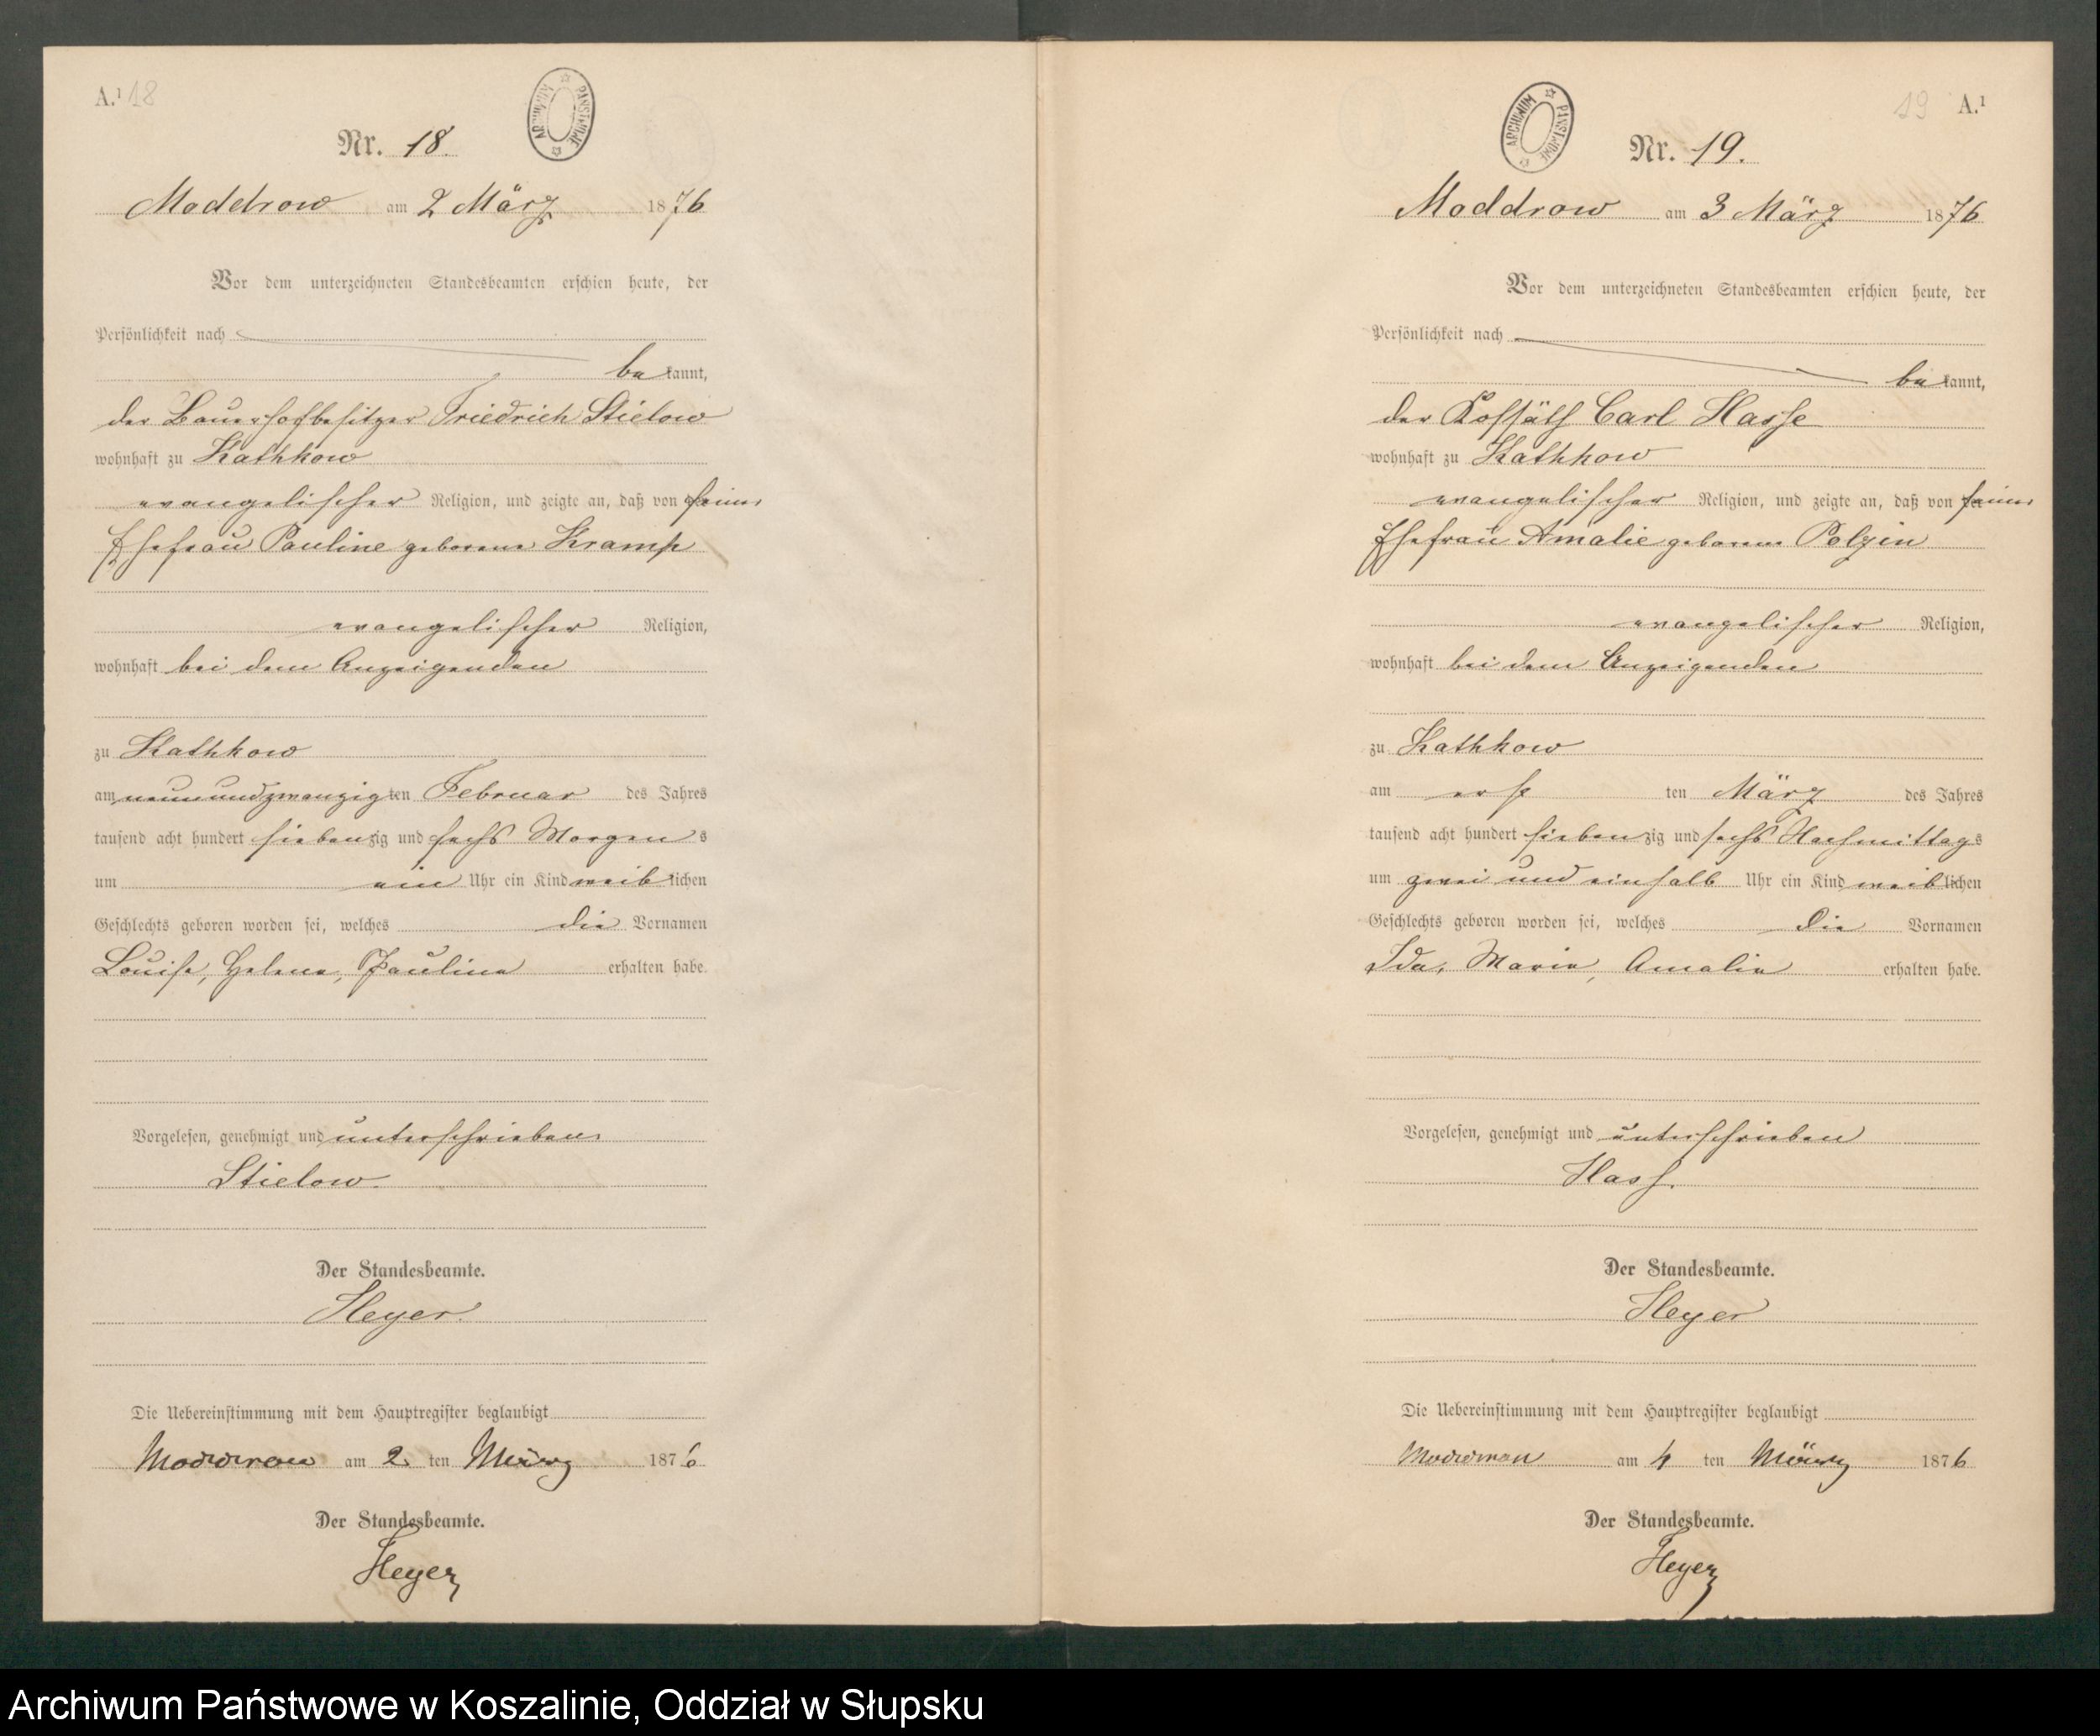 A.¹ 18
ARCHIWUM PAŃSTWOWE
Nr. 18.
Moddrow am 2 März 1876
Vor dem unterzeichneten Standesbeamten erschien heute, der
Persönlichkeit nach
bekannt,
der Bauerhofbesitzer Friedrich Stielow
wohnhaft zu Kathkow
evangelischer Religion, und zeigte an, daß von seiner
Ehefrau Pauline geborene Kramp
evangelischer Religion,
wohnhaft bei dem Anzeigenden
zu Kathkow
am neunundzwanzigten Februar des Jahres
tausend acht hundert siebenzig und sechs Morgens
um ein Uhr ein Kind weiblichen
Geschlechts geboren worden sei, welches die Vornamen
Louise, Helene, Pauline erhalten habe.
Vorgelesen, genehmigt und unterschrieben
Stielow.
Der Standesbeamte.
Heyer.
Die Uebereinstimmung mit dem Hauptregister beglaubigt
Moddrow am 2. ten März 1876
Der Standesbeamte.
Heyer
19 A.¹
ARCHIWUM PAŃSTWOWE
Nr. 19.
Moddrow am 3 März 1876
Vor dem unterzeichneten Standesbeamten erschien heute, der
Persönlichkeit nach
bekannt,
der Kossäth Carl Hasse
wohnhaft zu Kathkow
evangelischer Religion, und zeigte an, daß von seiner
Ehefrau Amalie geborene Polzin
evangelischer Religion,
wohnhaft bei dem Anzeigenden
zu Kathkow
am ersten März des Jahres
tausend acht hundert siebenzig und sechs Nachmittags
um zwei und einhalb Uhr ein Kind weiblichen
Geschlechts geboren worden sei, welches die Vornamen
Ida, Marie, Amalie erhalten habe.
Vorgelesen, genehmigt und unterschrieben
Hass.
Der Standesbeamte.
Heyer
Die Uebereinstimmung mit dem Hauptregister beglaubigt
Moddrow am 4 ten März 1876
Der Standesbeamte.
Heyer
Archiwum Państwowe w Koszalinie, Oddział w Słupsku